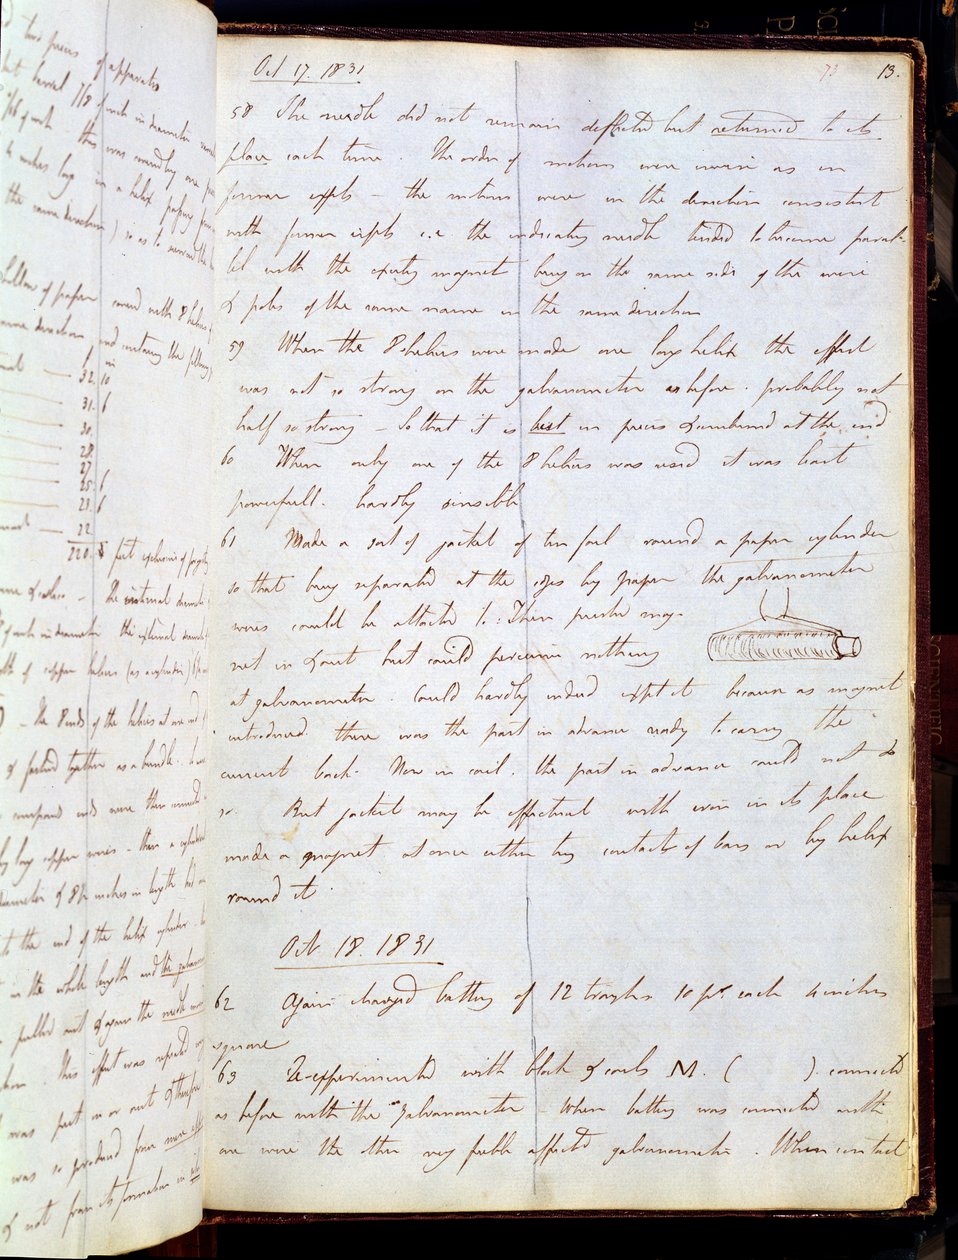 two pieces of apparatus
but barrel 7/8 of inch in diameter
this was
4 inches long in a helix
the same direction ) so as to
of paper covered with 8 helices
same direction and containing the following
ft in
32. 10
31. 6
30.
28.
27
25. 6
23. 6
22
220. feet exclusive of
the internal diameter
of inch in diameter the external diameter
of copper helices (as a cylinder)
- The 8 ends of the helices at one end
& fastened together as a bundle.
compound ends were then connected
by long copper wires - then a cylindrical
diameter & 8½ inches in length had one
to the end of the helix cylinder
in the whole length and the galvanometer
pulled out & again the needle moved
. This effect was repeated every
was put in or out & therefore
was so produced from mere
& not from its formation in
Oct 17. 1831
73 13.
58 The needle did not remain deflected but returned to its
place each time. The order of motions were inverse as in
former expts - the motions were in the direction consistent
with former expts i.e the indicating needle tended to become paral-
lel with the exciting magnet being on the same side of the wire
& poles of the same name in the same direction
59 When the 8 helices were made one long helix the effect
was not so strong on the galvanometer as before. probably not
half so strong - So that it is best in pieces & combined at the end
60 When only one of the 8 helices was used it was least
powerfull. hardly sensible
61 Made a sort of jacket of tin foil round a paper cylinder
so that being separated at the edges by paper the galvanometer
wires could be attached to. Then pushed mag-
net in & out but could perceive nothing
at galvanometer. Could hardly indeed expect it because as magnet
introduced there was the part in advance ready to carry the
current back. Now in coil. the part in advance could not do
so. But jacket may be effectual with iron in its place
made a magnet at once either by contacts of bars or by helix
round it
Oct. 18. 1831
62 Again charged battery of 12 troughs 10 pr. each 4 inches
square
63 Re-experimented with block & coils M. ( ) connected
as before with the galvanometer - When battery was connected with
one wire the other very feebly affected galvanometer. When contact